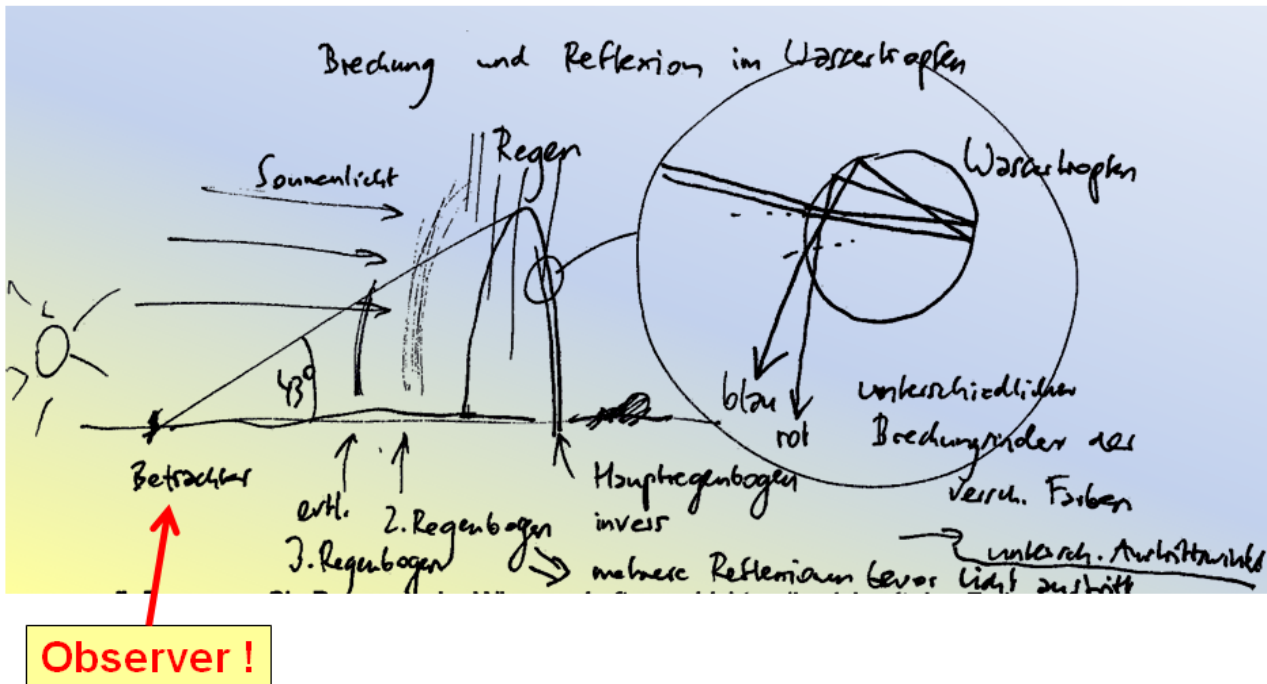 Brechung und Reflexion im Wassertropfen
Regen
Sonnenlicht
Wassertropfen
43°
blau
rot
unterschiedlicher
Brechungsindex der
versch. Farben
untersch. Austrittswinkel
Betrachter
evtl.
3. Regenbogen
2. Regenbogen
Hauptregenbogen
invers
mehrere Reflexionen bevor Licht austritt
Observer !